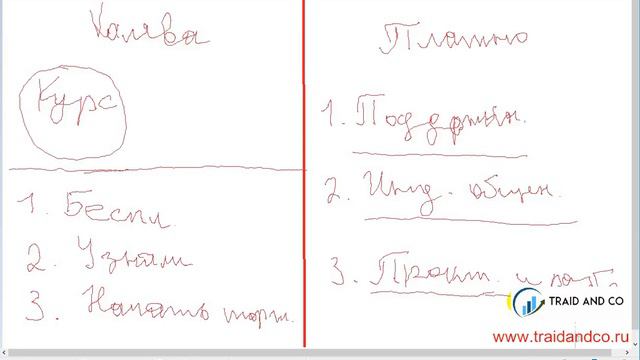 Халява
Курс
1. Беспл.
2. Узнали
3. Начать торг.
Платно
1. Поддержк.
2. Инд. общен.
3. Практ. и
TRAID AND CO
www.traidandco.ru